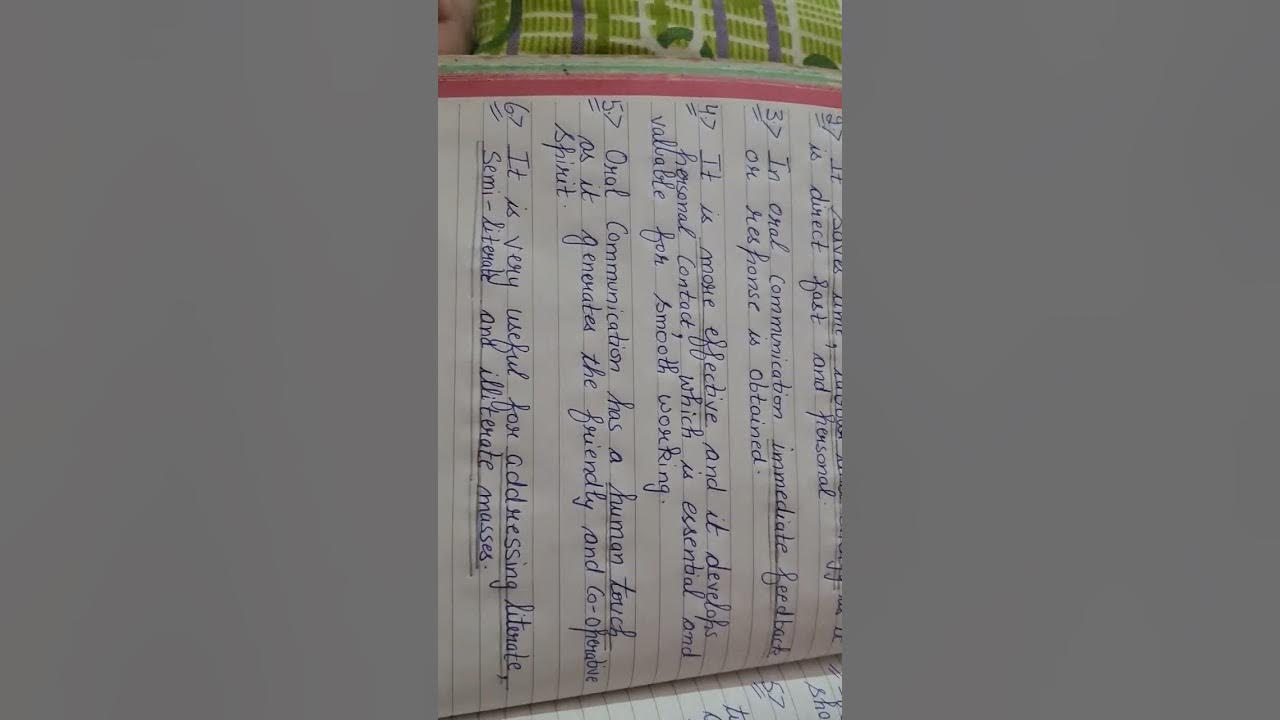 2> It saves time, as it
is direct fast and personal.
3.> In oral Communication immediate feedback
or response is obtained.
4.> It is more effective and it develops
personal Contact, which is essential and
valuable for smooth working.
5.> Oral Communication has a human touch
as it generates the friendly and Co-operative
spirit.
6.> It is very useful for addressing literate,
Semi-literate and illiterate masses.
5>